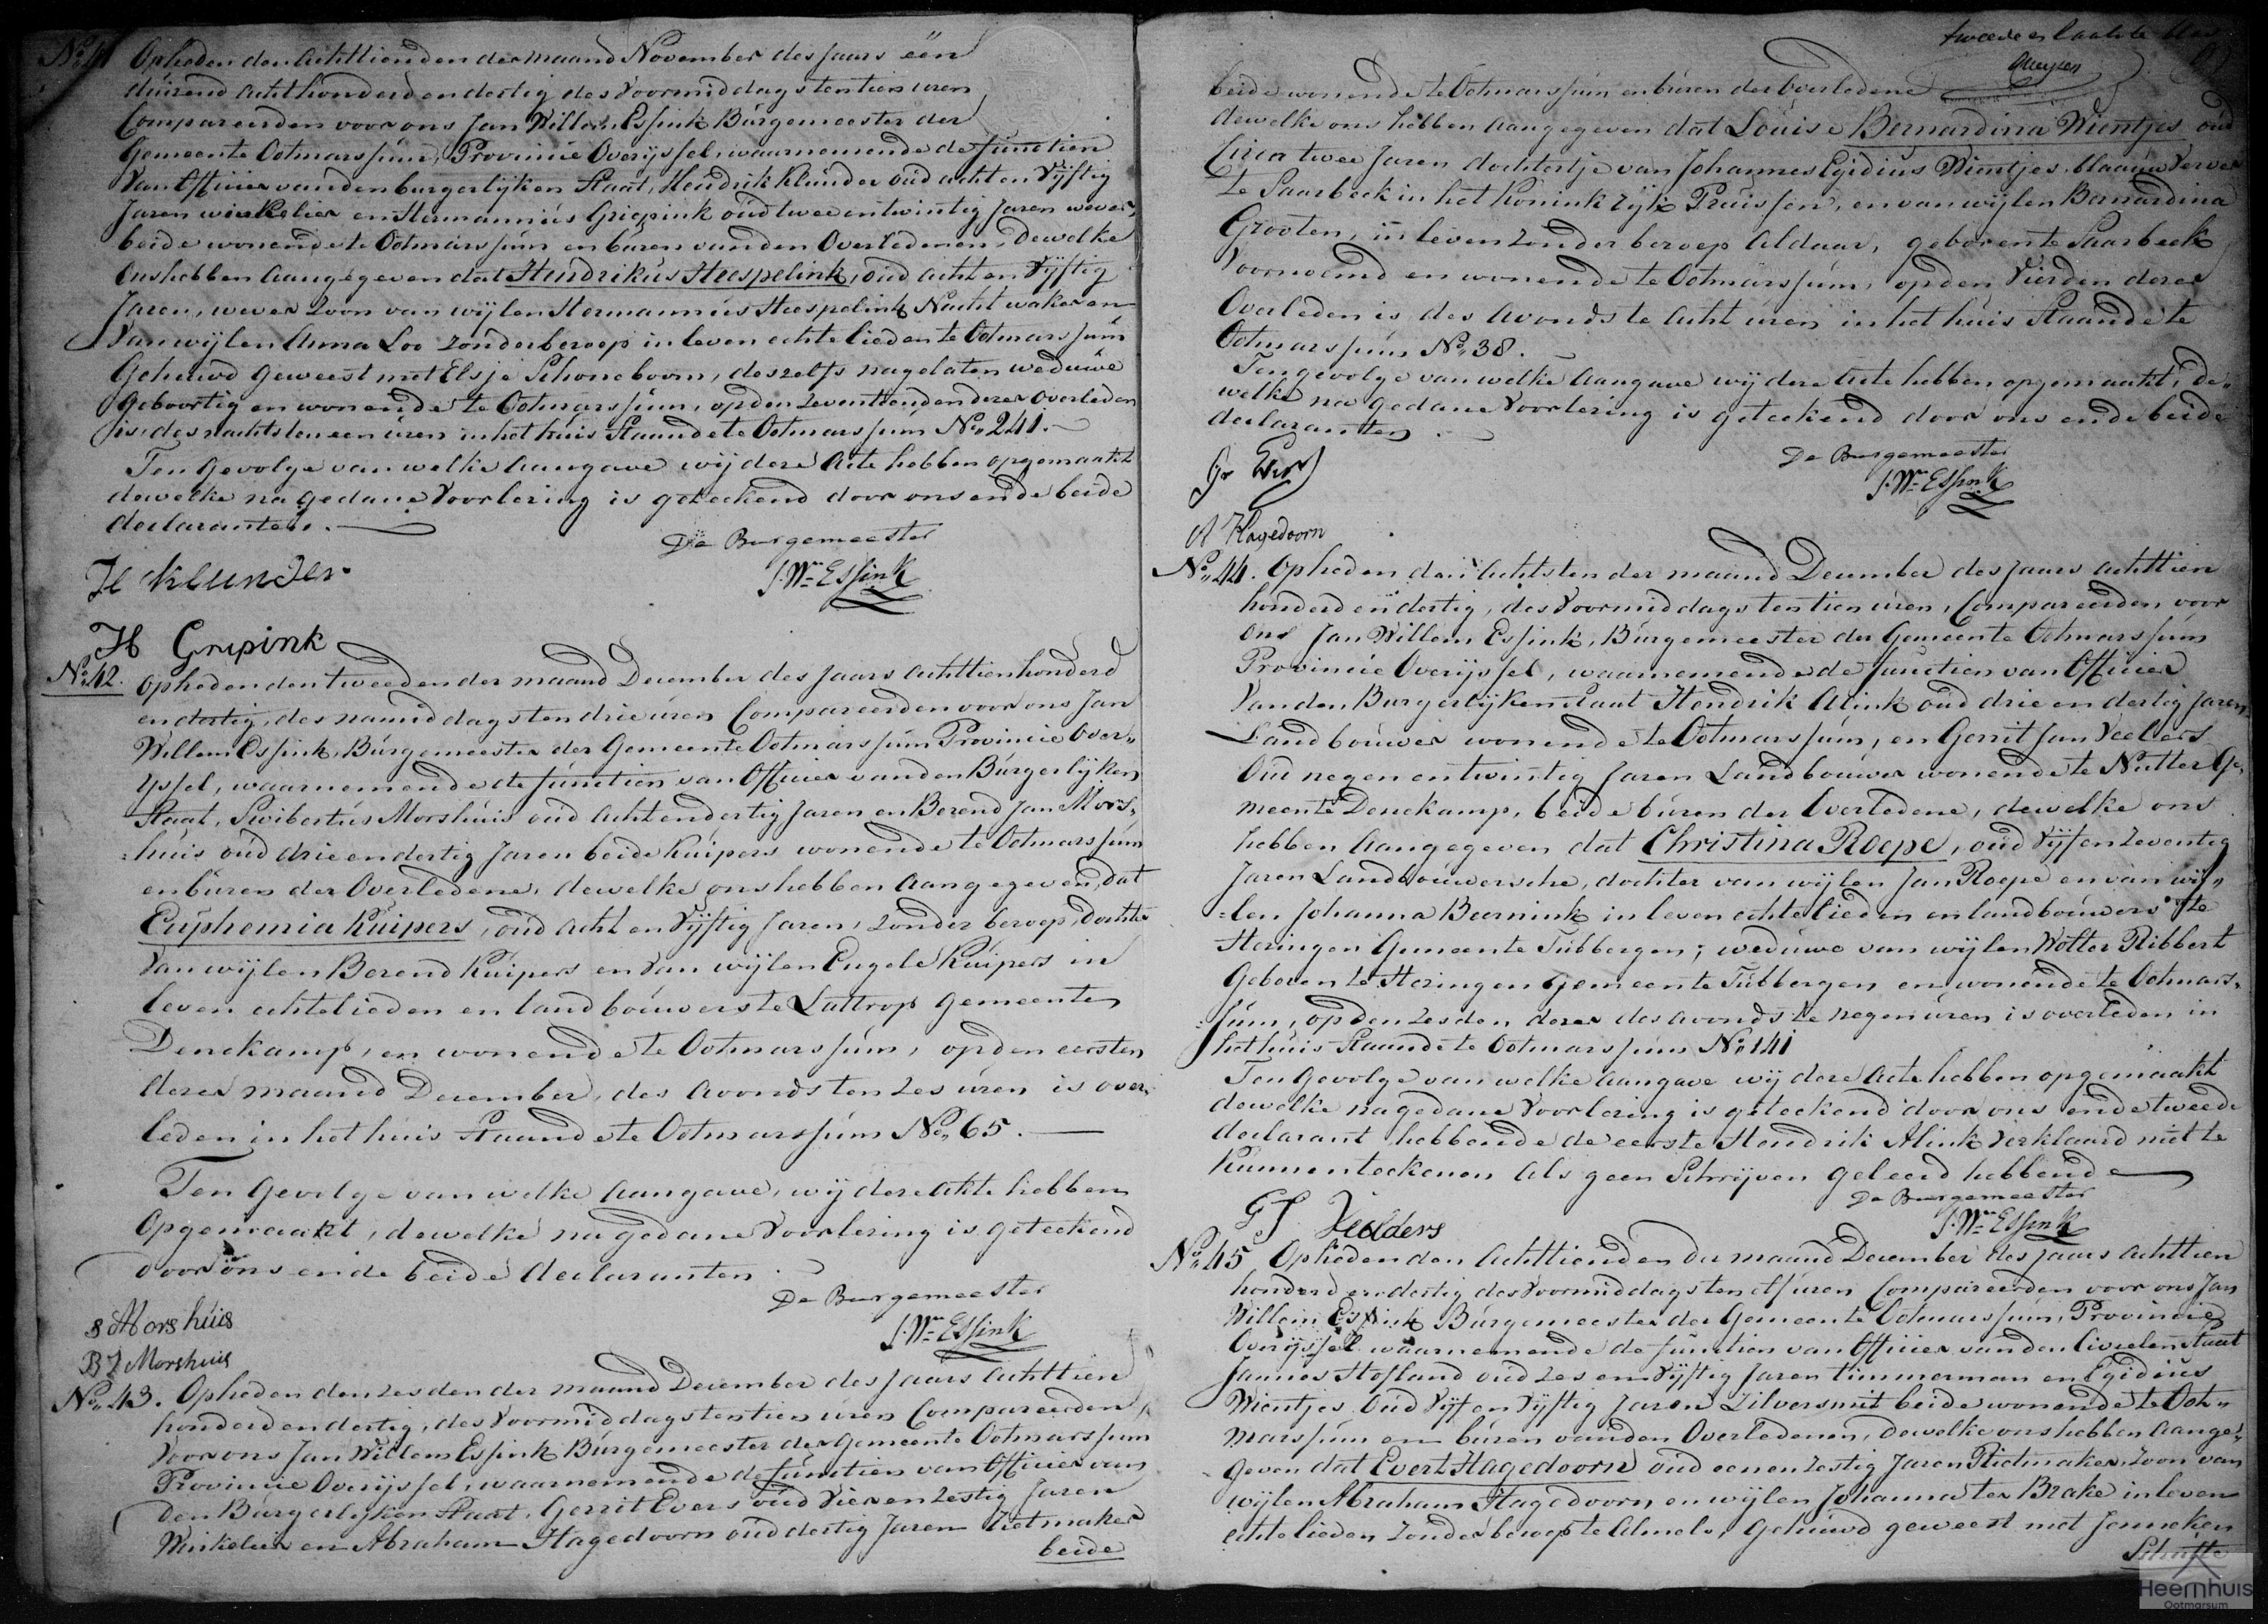 No. 41 Opheden den Achttienden der maand November des Jaars één
duizend achthonderd en dertig des Voormiddags ten tien uren
Compareerden voor ons Jan Willem Essink Burgemeester der
Gemeente Ootmarssum, Provincie Overijssel, waarnemende de functien
van Officier van den burgerlijken Staat, Hendrik Klunder oud acht en Vijftig
Jaren winkelier en Hermannus Griepink oud twee en twintig Jaren wever,
beide wonende te Ootmarssum en buren van den Overledenen, Dewelke
ons hebben aangegeven dat Hendrikus Heespelink, oud acht en Vijftig
Jaren, wever Zoon van wijlen Hermannus Heespelink Nachtwaker en
Van wijlen Anna Loo zonder beroep in leven echtelieden te Ootmarssum
Gehuwd geweest met Elsje Schoneboom, deszelfs nagelaten weduwe
Geboortig en wonende te Ootmarssum, op den Zeventienden dezer overleden
is, des nachts ten een uren in het huis Staande te Ootmarssum No. 241.
Ten Gevolge van welke Aangave wij deze Acte hebben opgemaakt
dewelke na gedane Voorlezing is geteekend door ons en de beide
declaranten.
De Burgemeester
J. Wm Essink
H Klunder
H Gripink
No. 42. Opheden den tweeden der maand December des Jaars achttienhonderd
en dertig, des namiddags ten drie uren Compareerden voor ons Jan
Willem Essink, Burgemeester der Gemeente Ootmarssum Provincie Over„
yssel, waarnemende de functien van Officier van den Burgerlijken
Staat, Swibertus Morshuis oud acht en dertig Jaren en Berend Jan Mors„
huis oud drie en dertig Jaren beide kuipers wonende te Ootmarssum
en buren der Overledene, dewelke ons hebben aangegeven, dat
Euphemia Kuipers, oud acht en Vijftig Jaren, zonder beroep, dochter
Van wijlen Berend Kuipers en van wijlen Engele Kuipers in
leven echtelieden en landbouwers te Lattrop Gemeente
Denekamp, en wonende te Ootmarssum, op den eersten
dezer maand December, des Avonds ten zes uren is over„
leden in het huis Staande te Ootmarssum No. 65.
Ten Gevolge van welke Aangave, wij deze Akte hebben
Opgemaakt, dewelke na gedane Voorlezing is geteekend
door ons en de beide declaranten.
De Burgemeester
J. Wm Essink
S Morshuis
B J Morshuis
No. 43. Opheden den zesden der maand December des Jaars Achttien
honderd en dertig, des Voormiddags ten tien uren Compareerden
Voor ons Jan Willem Essink Burgemeester der Gemeente Ootmarssum
Provincie Overijssel, waarnemende de functien van Officier van
den Burgerlijken Staat, Gerrit Evers oud Vier en Zestig Jaren
Winkelier en Abraham Hagedoorn oud dertig Jaren Rietmaker
beide
tweede en laatste blad
beide wonende te Ootmarssum en buren der overledene
dewelke ons hebben aangegeven dat Louise Bernardina Wientjes oud
Circa twee Jaren dochtertje van Johannes Egidius Wientjes, blaauw Verver
te Saarbeck in het Koninkrijk Pruissen, en van wijlen Bernardina
Grooten, in leven zonder beroep Aldaar, geboren te Saarbeek
Voornoemd en wonende te Ootmarssum, op den Vierden dezer
Overleden is des Avonds te acht uren in het huis Staande te
Ootmarssum No. 38.
Ten gevolge van welke aangave wij deze Acte hebben opgemaakt, de„
welke na gedane Voorlezing is geteekend door ons en de beide
declaranten.
De Burgemeester
J. Wm Essink
A Hagedoorn
No. 44. Opheden den Achtsten der maand December des Jaars achttien
honderd en dertig, des Voormiddags ten tien uren, Compareerden voor
ons Jan Willem Essink, Burgemeester der Gemeente Ootmarssum
Provincie Overijssel, waarnemende de functien van Officier
Van den Burgerlijken Staat Hendrik Alink oud drie en dertig Jaren
Landbouwer wonende te Ootmarssum, en Gerrit Jan Veelders
Oud negen en twintig Jaren Landbouwer wonende te Nutter Ge„
meente Denekamp, beide buren der Overledene, dewelke ons
hebben Aangegeven dat Christina Roepe, oud Vijf en Zeventig
Jaren Landbouwersche, dochter van wijlen Jan Roepe en van wij„
len Johanna Beernink in leven echtelieden en landbouwers te
Hezingen Gemeente Tubbergen; weduwe van wijlen Wolter Ribbert
Geboren te Hezingen Gemeente Tubbergen en wonende te Ootmars„
sum, op den zesden dezer des avonds te negen uren is overleden in
het huis Staande te Ootmarssum No. 141
Ten Gevolge van welke aangave wij deze Acte hebben opgemaakt
dewelke na gedane Voorlezing is geteekend door ons en de tweede
declarant hebbende de eerste Hendrik Alink Verklaard niet te
Kunnen teekenen als geen Schrijven geleerd hebbende
De Burgemeester
J. Wm Essink
G J Veelders
No. 45 Opheden den Achttienden der maand December des jaars achttien
honderd en dertig des Voormiddags ten elf uren Compareerden voor ons Jan
Willem Essink Burgemeester der Gemeente Ootmarssum, Provincie
Overijssel waarnemende de functien van Officier van den Civielen Staat
Jannes Hofland oud zes en Vijftig Jaren timmerman en Egidius
Wientjes Oud Vijf en Vijftig Jaren Zilversmit beide wonende te Oot„
marssum en buren van den Overledenen, Dewelke ons hebben Aange„
geven dat Evert Hagedoorn oud een en zestig Jaren Rietmaker, Zoon van
wijlen Abraham Hagedoorn en wijlen Johanna ter Brake in leven
echtelieden Zonder beroep te Almelo, Gehuwd geweest met Jenneken
Schutte
Heemhuis
Ootmarsum